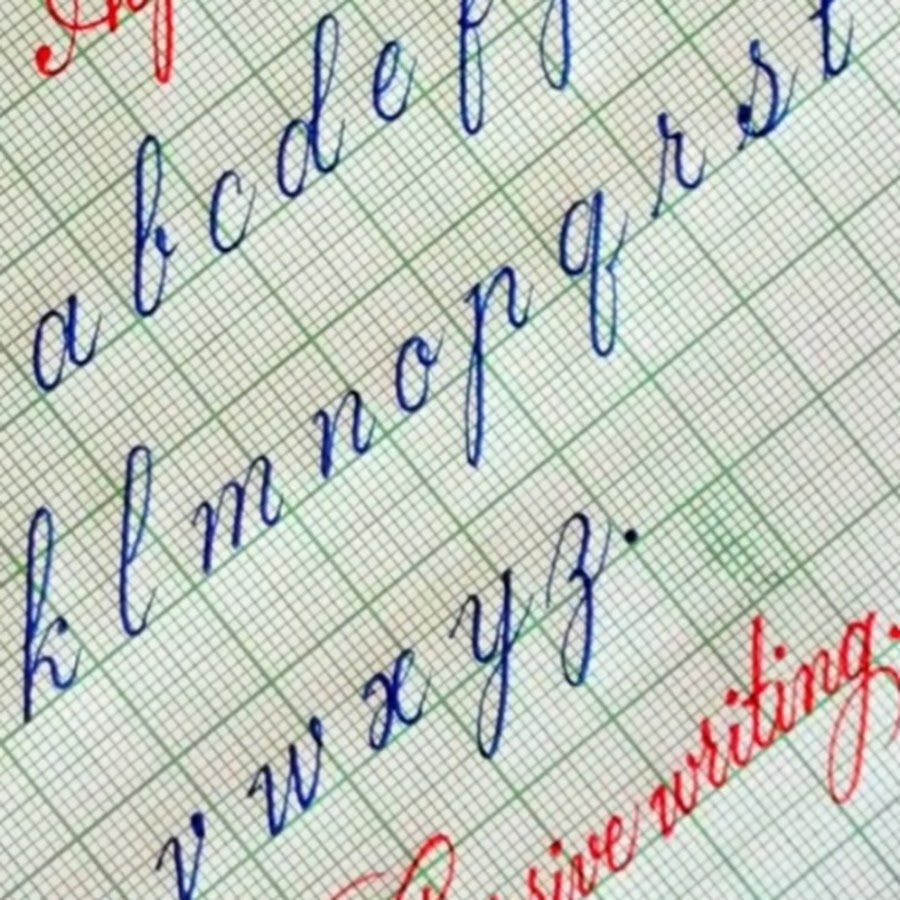 a b c d e f g
k l m n o p q r s t
v w x y z.
writing.